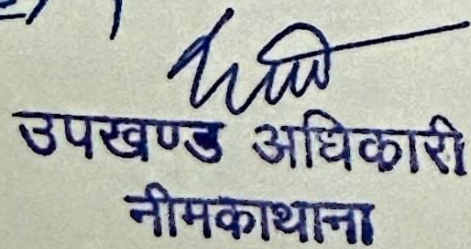 उपखण्ड अधिकारी
नीमकाथाना